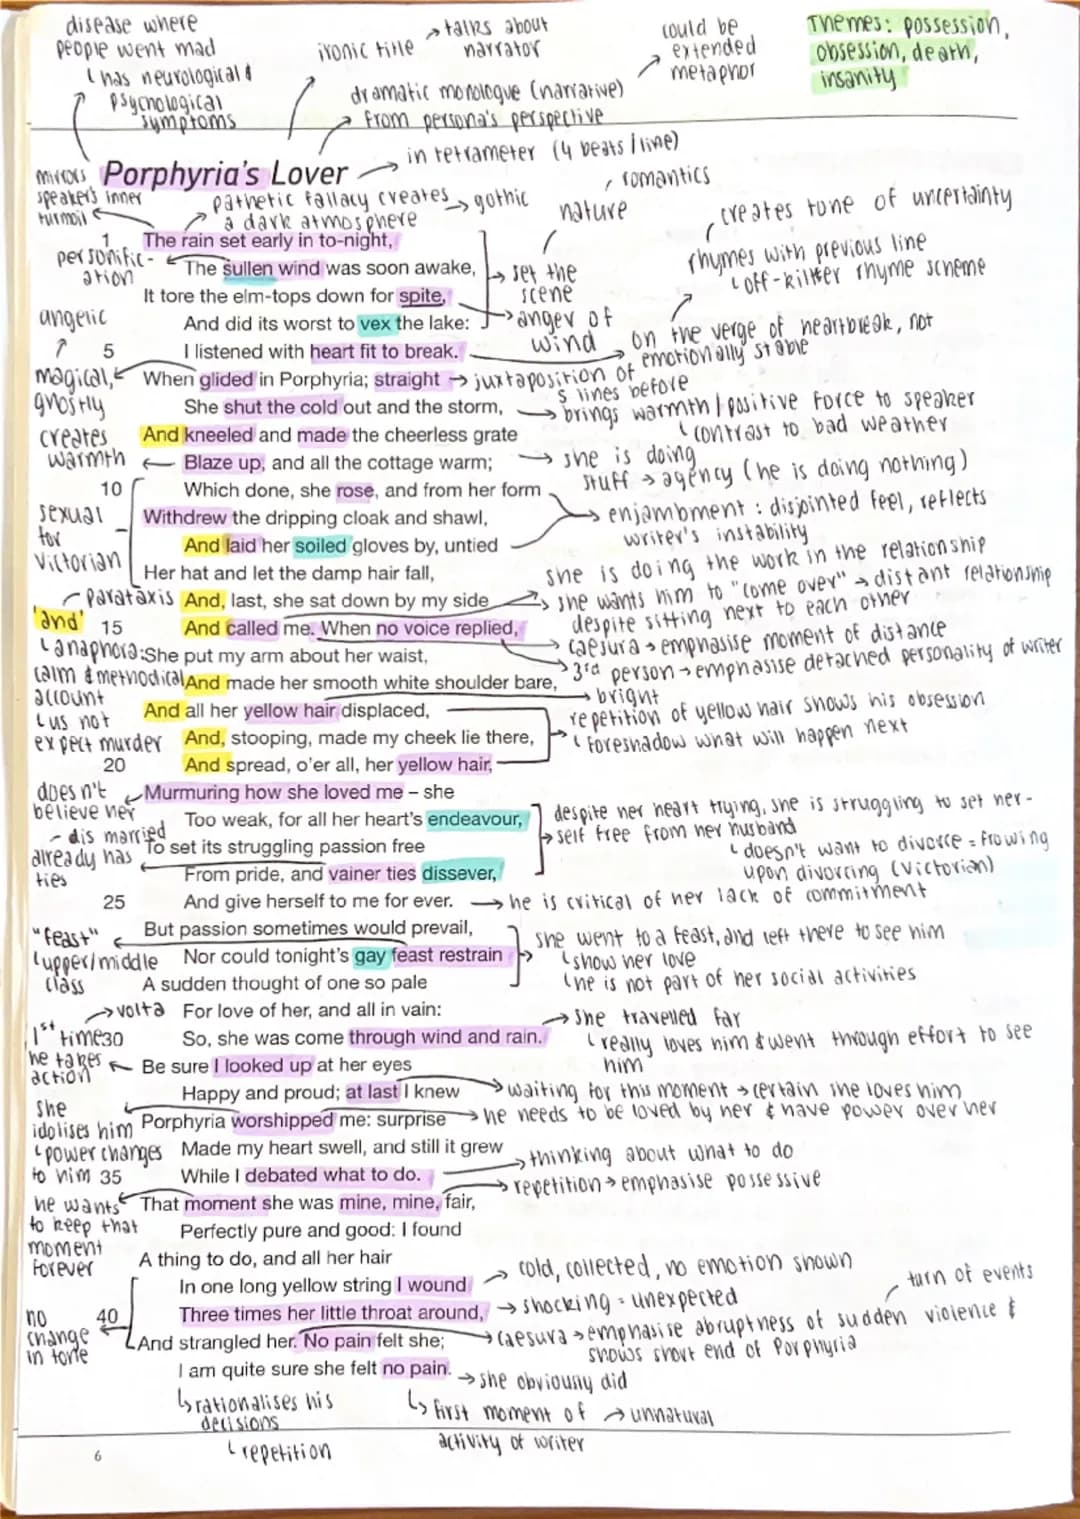 disease where
people went mad
has neurological &
psychological
symptoms
ironic title
talks about
narrator
dramatic monologue (narrative)
from persona's perspective
could be
extended
metaphor
Themes: possession,
obsession, death,
insanity
Porphyria's Lover
in tetrameter (4 beats/line)
mirrors
speaker's inner
turmoil
pathetic fallacy creates
a dark atmosphere
gothic
romantics
nature
creates tone of uncertainty
rhymes with previous line
off-kilter rhyme scheme
1 The rain set early in to-night,
personific-
ation
The sullen wind was soon awake,
set the
scene
It tore the elm-tops down for spite,
And did its worst to vex the lake:
anger of
wind
angelic
5 I listened with heart fit to break.
on the verge of heartbreak, not
emotionally stable
magical,
ghostly
When glided in Porphyria; straight
juxtaposition of
5 lines before
She shut the cold out and the storm,
brings warmth/positive force to speaker
contrast to bad weather
creates
warmth
And kneeled and made the cheerless grate
Blaze up, and all the cottage warm;
she is doing
stuff → agency (he is doing nothing)
10 Which done, she rose, and from her form
Withdrew the dripping cloak and shawl,
enjambment: disjointed feel, reflects
writer's instability
sexual
for
Victorian
And laid her soiled gloves by, untied
Her hat and let the damp hair fall,
she is doing the work in the relationship
parataxis
And, last, she sat down by my side
she wants him to "come over" → distant relationship
despite sitting next to each other
'and'
15 And called me. When no voice replied,
caesura → emphasise moment of distance
anaphora:
calm & methodical
account
us not
expect murder
She put my arm about her waist,
3rd person → emphasise detached personality of writer
And made her smooth white shoulder bare,
bright
And all her yellow hair displaced,
repetition of yellow hair shows his obsession
foreshadow what will happen next
And, stooping, made my cheek lie there,
20 And spread, o'er all, her yellow hair,
doesn't
believe her
Murmuring how she loved me – she
Too weak, for all her heart's endeavour,
despite her heart trying, she is struggling to set her-
self free from her husband
- dis married
already has
ties
To set its struggling passion free
doesn't want to divorce = frowing
upon divorcing (Victorian)
From pride, and vainer ties dissever,
25 And give herself to me for ever.
he is critical of her lack of commitment
But passion sometimes would prevail,
"feast"
upper/middle
class
Nor could tonight's gay feast restrain
she went to a feast, and left there to see him
show her love
he is not part of her social activities
A sudden thought of one so pale
volta
For love of her, and all in vain:
1st time
he takes
action
30 So, she was come through wind and rain.
she travelled far
really loves him & went through effort to see
him
Be sure I looked up at her eyes
Happy and proud; at last I knew
waiting for this moment → certain she loves him
she
idolises him
Porphyria worshipped me: surprise
he needs to be loved by her & have power over her
power changes
to him
Made my heart swell, and still it grew
35 While I debated what to do.
thinking about what to do
he wants
to keep that
moment
forever
That moment she was mine, mine, fair,
repetition → emphasise possessive
Perfectly pure and good: I found
A thing to do, and all her hair
In one long yellow string I wound
cold, collected, no emotion shown
no
change
in tone
40 Three times her little throat around,
shocking = unexpected
turn of events
And strangled her. No pain felt she;
caesura → emphasise abruptness of sudden violence &
shows short end of Porphyria
I am quite sure she felt no pain.
she obviously did
rationalises his
decisions
repetition
first moment of → unnatural
activity of writer
6